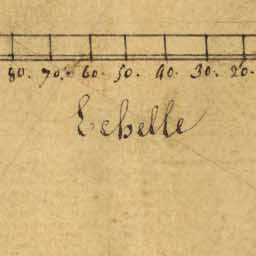 80. 70. 60. 50. 40. 30. 20.
Echelle